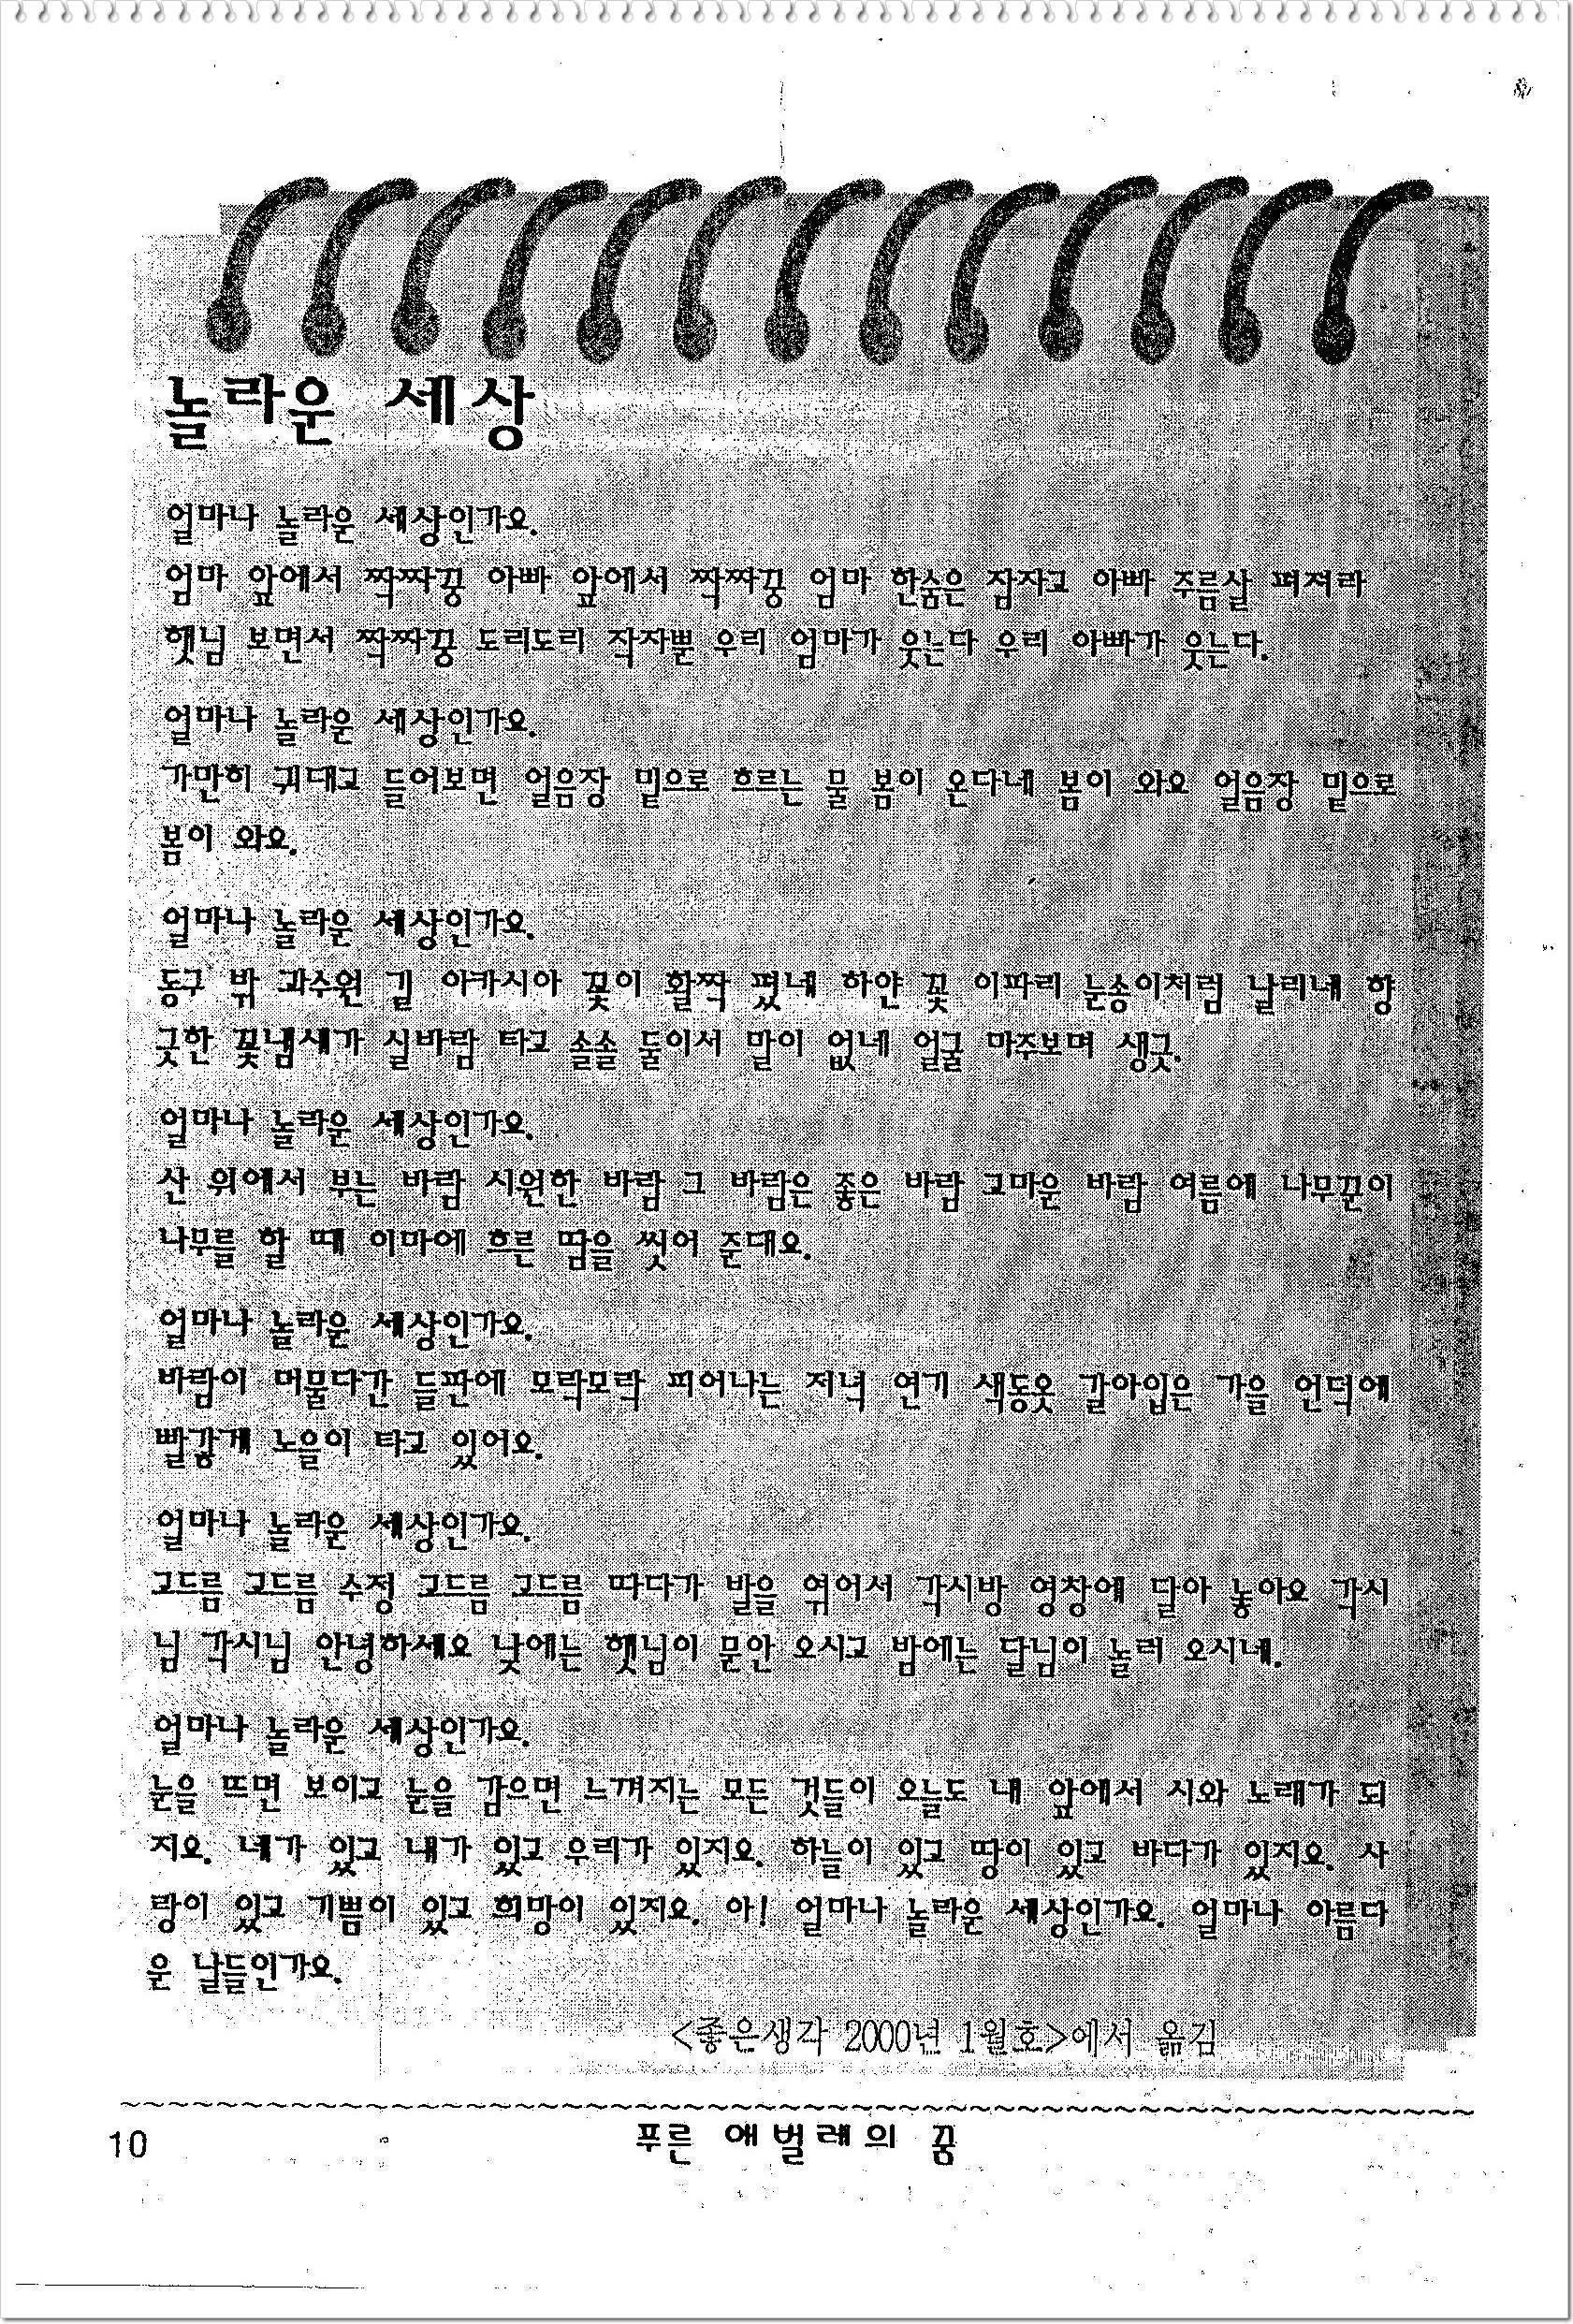 놀라운 세상
얼마나 놀라운 세상인가요.
엄마 앞에서 짝짜꿍 아빠 앞에서 짝짜꿍 엄마 한숨은 잠자고 아빠 주름살 펴져라
햇님 보면서 짝짜꿍 도리도리 작자뿡 우리 엄마가 웃는다 우리 아빠가 웃는다.
얼마나 놀라운 세상인가요.
가만히 귀대고 들어보면 얼음장 밑으로 흐르는 물 봄이 온다네 봄이 와요 얼음장 밑으로
봄이 와요.
얼마나 놀라운 세상인가요.
동구 밖 과수원 길 아카시아 꽃이 활짝 폈네 하얀 꽃 이파리 눈송이처럼 날리네 향
긋한 꽃냄새가 실바람 타고 솔솔 둘이서 말이 없네 얼굴 마주보며 생긋.
얼마나 놀라운 세상인가요.
산 위에서 부는 바람 시원한 바람 그 바람은 좋은 바람 고마운 바람 여름에 나무꾼이
나무를 할 때 이마에 흐른 땀을 씻어 준대요.
얼마나 놀라운 세상인가요.
바람이 머물다간 들판에 모락모락 피어나는 저녁 연기 색동옷 갈아입은 가을 언덕에
빨갛게 노을이 타고 있어요.
얼마나 놀라운 세상인가요.
고드름 고드름 수정 고드름 고드름 따다가 발을 엮어서 각시방 영창에 달아 놓아요 각시
님 각시님 안녕하세요 낮에는 햇님이 문안 오시고 밤에는 달님이 놀러 오시네.
얼마나 놀라운 세상인가요.
눈을 뜨면 보이고 눈을 감으면 느껴지는 모든 것들이 오늘도 내 앞에서 시와 노래가 되
지요. 네가 있고 내가 있고 우리가 있지요. 하늘이 있고 땅이 있고 바다가 있지요. 사
랑이 있고 기쁨이 있고 희망이 있지요. 아! 얼마나 놀라운 세상인가요. 얼마나 아름다
운 날들인가요.
<좋은생각 2000년 1월호>에서 옮김
10 푸른 애벌레의 꿈